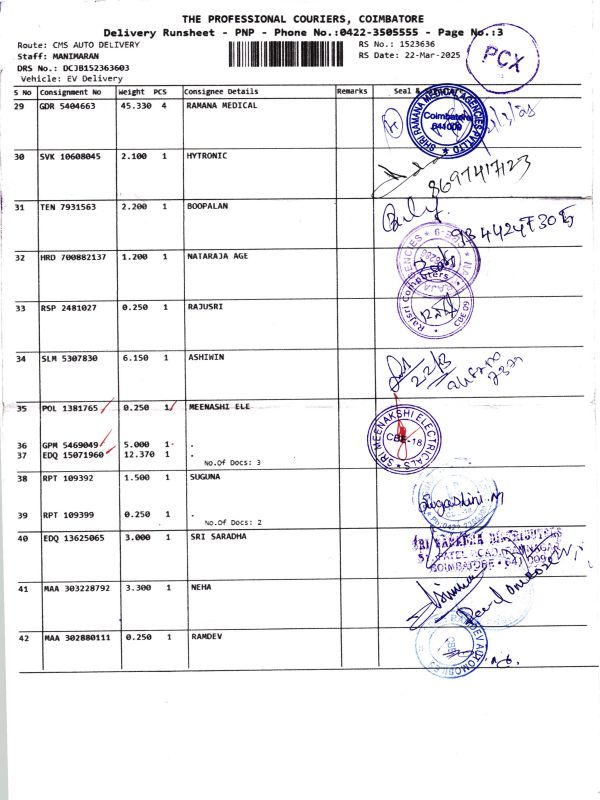 THE PROFESSIONAL COURIERS, COIMBATORE
Delivery Runsheet - PNP - Phone No.:0422-3505555 - Page No.:3
Route: CMS AUTO DELIVERY RS No.: 1523636
Staff: MANIMARAN RS Date: 22-Mar-2025
DRS No.: DCJB152363603
Vehicle: EV Delivery
PCX
S No Consignment No Weight PCS Consignee Details Remarks Seal &
29 GDR 5404663 45.330 4 RAMANA MEDICAL
SHRI RAMANA MEDICAL AGENCIES PVT LTD
Coimbatore
641009
30 SVK 10608045 2.100 1 HYTRONIC
8697417123
31 TEN 7931563 2.200 1 BOOPALAN
32 HRD 700882137 1.200 1 NATARAJA AGE
33 RSP 2481027 0.250 1 RAJUSRI
Rajsri Computers
CBE 09
34 SLM 5307830 6.150 1 ASHIWIN
22/3
35 POL 1381765 0.250 1 MEENASHI ELE
SRI MEENAKSHI ELECTRICALS
CBE-18
36 GPM 5469049 5.000 1 .
37 EDQ 15071960 12.370 1 .
No.Of Docs: 3
38 RPT 109392 1.500 1 SUGUNA
Sugashini.M
39 RPT 109399 0.250 1 .
No.Of Docs: 2
40 EDQ 13625065 3.000 1 SRI SARADHA
SRI SARADHA DISTRIBUTORS
COIMBATORE
41 MAA 303228792 3.300 1 NEHA
42 MAA 302880111 0.250 1 RAMDEV
RAMDEV AUTOMOBILES